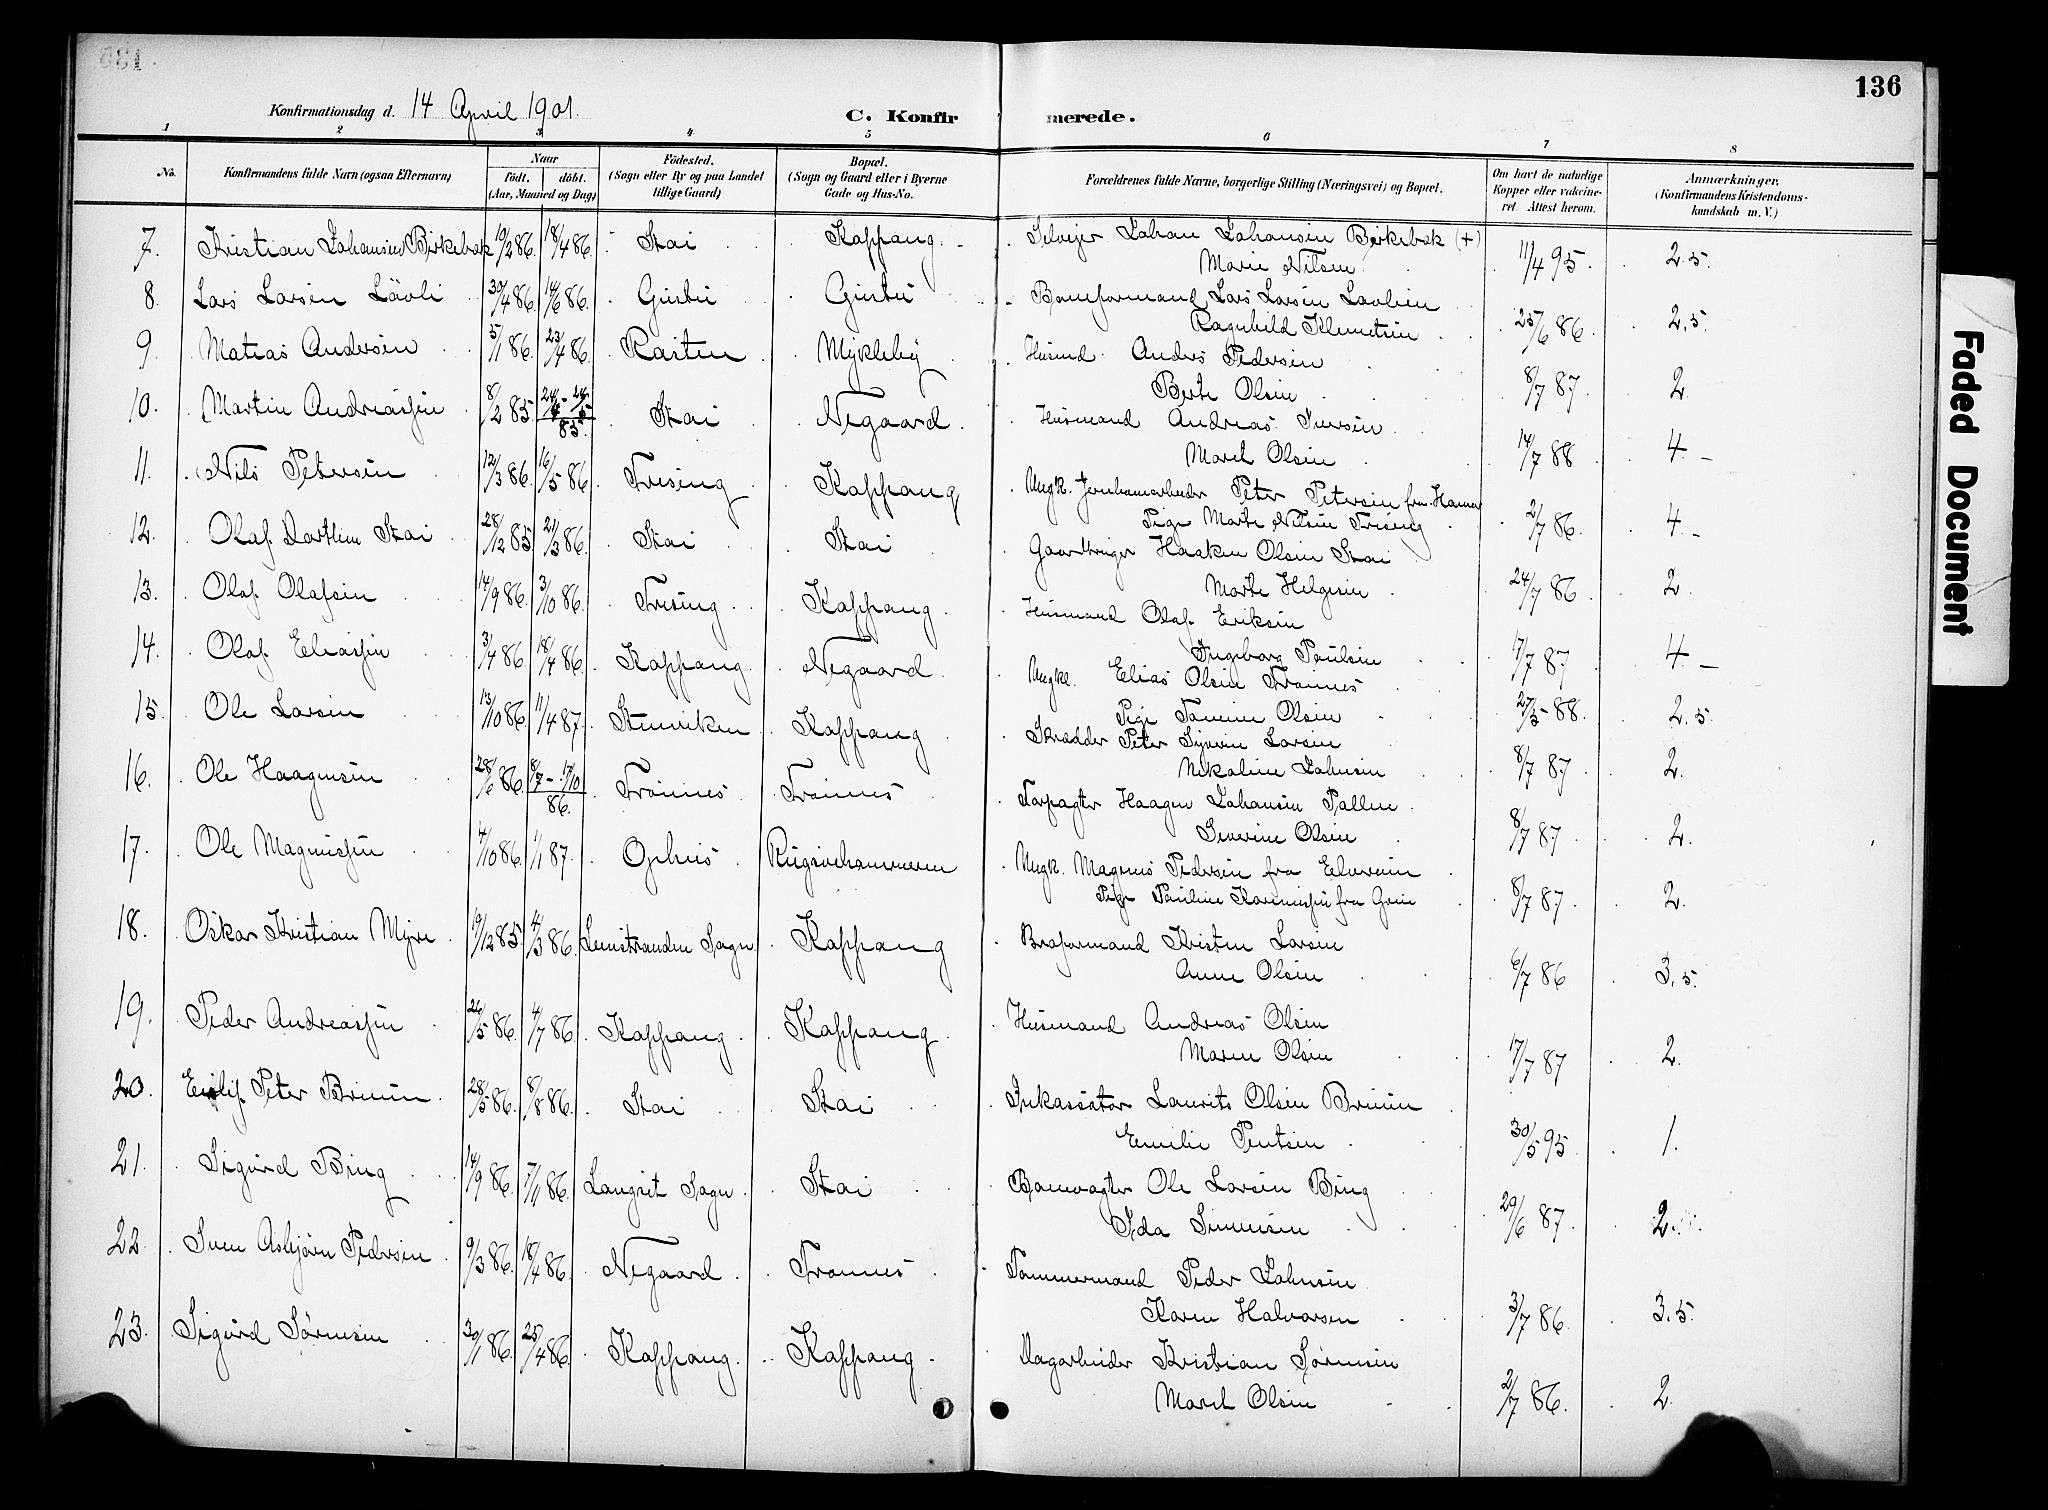 136
Konfirmationsdag d. 14 April 1901.
C. Konfirmerede.
1 2 3 4 5 6 7 8
No. Konfirmandens fulde Navn (ogsaa Efternavn) Naar Födt. döbt. (Aar, Maaned og Dag) Födested. (Sogn eller By og paa Landet tillige Gaard) Bopæl. (Sogn og Gaard eller i Byerne Gade og Hus-No. Forældrenes fulde Navne, borgerlige Stilling (Næringsvei) og Bopæl. Om havt de naturlige Kopper eller vakcineret. Attest herom. Anmærkninger. (Konfirmandens Kristendomskundskab m. V.)
7. Kristian Johansen Birkebæk 10/2 86. 18/4 86. Stai Koppang. Selveier Johan Johansen Birkebæk (+)
Marie Nilsen 11/4 95. 2.5.
8. Lars Larsen Lövli 30/4 86. 14/6 86. Gjerstu Gjerstu Baneformand Lars Larsen Lövlien
Ragnhild Klemetsen 25/6 86. 2,5.
9. Matias Andersen 5/1 86. 23/4 86. Rasten Mykleby Husmd. Anders Pedersen
Berte Olsen 8/7 87. 2.
10. Martin Andreassen 8/2 85. 85. Stai Negaard Husmand Andreas Iversen
Maret Olsen 14/7 88 4.
11. Nils Petersen 12/3 86. 16/5 86 Trøsing Koppang Ungk. Jernbanearbeider Peter Petersen fra Hamar
Pige Marte Nilsen Trøsing 2/7 86. 4.
12. Olaf Stai 28/12 85 21/3 86. Stai Stai Gaardbruger Haaken Olsen Stai
Marte Helgesen 24/7 86 2.
13. Olaf Olafsen 14/9 86. 3/10 86. Trøsing Koppang. Husmand Olaf Eriksen
Ingeborg Paulsen 17/7 87. 4.
14. Olaf Eliassen 3/4 86. 18/4 86. Koppang. Negaard. Ungkl. Elias Olsen Trønnes
Pige Olsen 27/3 88. 2,5.
15. Ole Larsen 13/10 86. 11/4 87. Stenviken Koppang Skrædder Peter Syverin Larsen
Nikoline Johnsen 8/7 87. 2.
16. Ole Haagensen 28/6 86. 8/7 - 17/10 86. Trønnes Trønnes Forpagter Haagen Johansen Pallen
Severine Olsen 8/7 87. 2.
17. Ole Magnussen 4/10 86. 1/1 87. Ophus Ungk. Magnus Pedersen fra Elverum
Pige Pauline fra Grue 8/7 87. 2.
18. Oskar Kristian Myre 19/12 85. 4/3 86. Lunstranden Sogn Koppang Braformand Kristen Larsen
Anne Olsen 6/7 86 3,5.
19. Peder Andreassen 26/5 86. 4/7 86. Koppang. Koppang Husmand Andreas Olsen
Maren Olsen 17/7 87 2.
20. Peter Bruun 28/5 86. 8/8 86. Stai Stai Inkassator Laurits Olsen Bruun
Emilie 30/5 95. 1.
21. Sigurd Bing 14/9 86. 7/11 86. Langset Sogn Stai Banevogter Ole Larsen Bing
Ida Simensen 29/6 87. 2.
22. Sven Asbjörn Pedersen 9/3 86. 18/4 86. Negaard Trønnes Tømmermand Peder Johnsen
Karen Halvorsen 3/7 86. 3.5.
23. Sigurd Sørensen 30/1 86. 25/4 86. Koppang. Koppang. Dagarbeider Kristian Sørensen
Maret Olsen 2/7 86. 2.
Faded Document